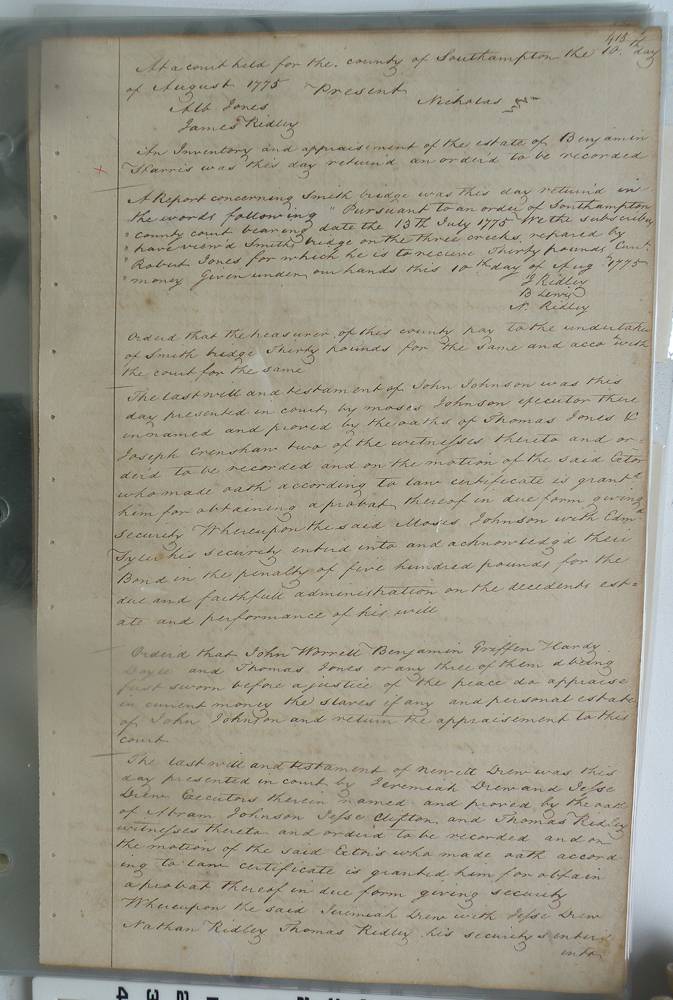 413
At a court held for the. county of Southampton the 10th day
of August 1775 Present
Alb Jones Nicholas
James Ridley
An Inventory and appraisement of the estate of Benjamin
Harris was this day return'd an order'd to be recorded
A Report concerning Smith bridge was this day return'd in
the words following " Pursuant to an order of Southampton
" county court bearing date the 13th July 1775 We the subscribers
" have view'd Smiths bridge on the three creeks, repared by
" Robert Jones for which he is to recieve Thirty pounds Curt
" money Given under our hands this 10th day of Aug 1775
J Ridley
B Lewis
N. Ridley
Orderd that the treasurer of this county pay to the undertaker
of Smith bridge Thirty pounds for the same and accot with
the court for the same
The last will and testament of John Johnson was this
day presented in court by moses Johnson executor there
in named and proved by the oaths of Thomas Jones &
Joseph Crenshaw two of the witnesses thereto and or=
der'd to be recorded and on the motion of the said Exctor
who made oath according to law certificate is grantd
him for obtaining a probat thereof in due form giving
security Whereupon the said Moses Johnson with Edmd
Tyler his security enterd into and acknowledgd their
Bond in the penalty of five hundred pounds for the
due and faithfull administration on the decedents est=
ate and performance of his will
Orderd that John Worrell Benjamin Griffen Hardy
Doyle and Thomas Jones or any three of them being
first sworn before a justice of the peace do appraise
in current money the slaves if any and personal estate
of John Johnson and return the appraisement to this
court
The last will and testament of Newitt Drew was this
day presented in court by Jeremiah Drew and Jesse
Drew Executors therein named and proved by the oath
of Abram Johnson Jesse Clifton and Thomas Ridley
witnesses thereto and order'd to be recorded and on
the motion of the said Exctors who made oath accord
ing to law certificate is granted him for obtain
a probat thereof in due form giving security
Whereupon the said Jeremiah Drew with Jesse Drew
Nathan Ridley Thomas Ridley his securitys enterd
into